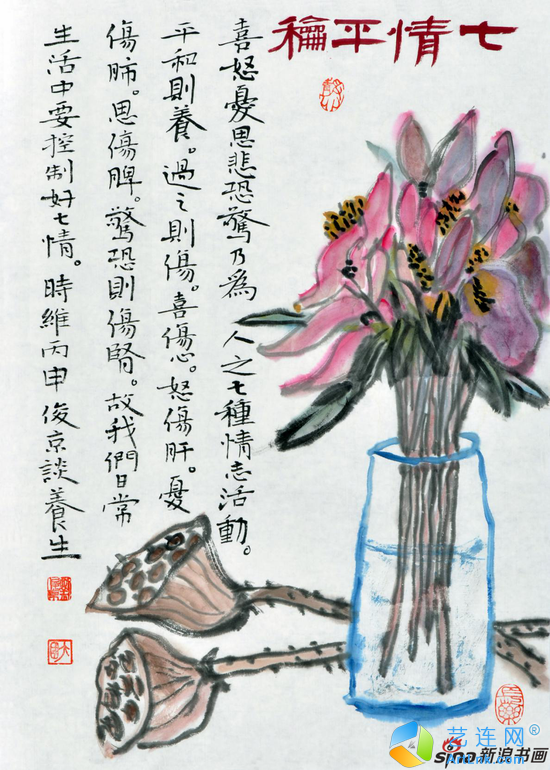 七情平龢
喜怒憂思悲恐驚乃為人之七種情志活動。
平和則養。過之則傷。喜傷心。怒傷肝。憂
傷肺。思傷脾。驚恐則傷腎。故我們日常
生活中要控制好七情。時維丙申俊京談養生
艺连网®
sina新浪书画